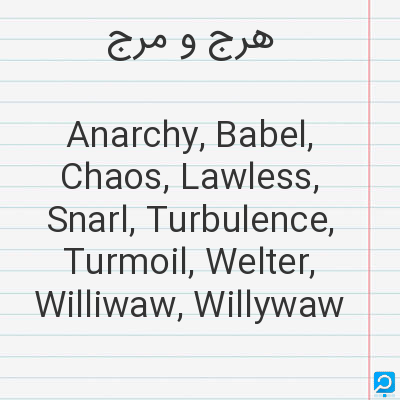 هرج و مرج
Anarchy, Babel,
Chaos, Lawless,
Snarl, Turbulence,
Turmoil, Welter,
Williwaw, Willywaw